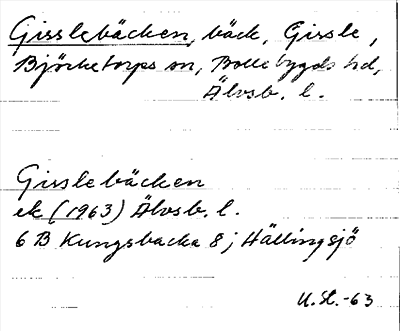 Gisslebäcken, bäck, Gissle,
Björketorps sn, Bollebygds hd,
Älvsb. l.
Gisslebäcken
ek (1963) Älvsb. l.
6 B Kungsbacka 8j Hällingsjö
U.St.-63